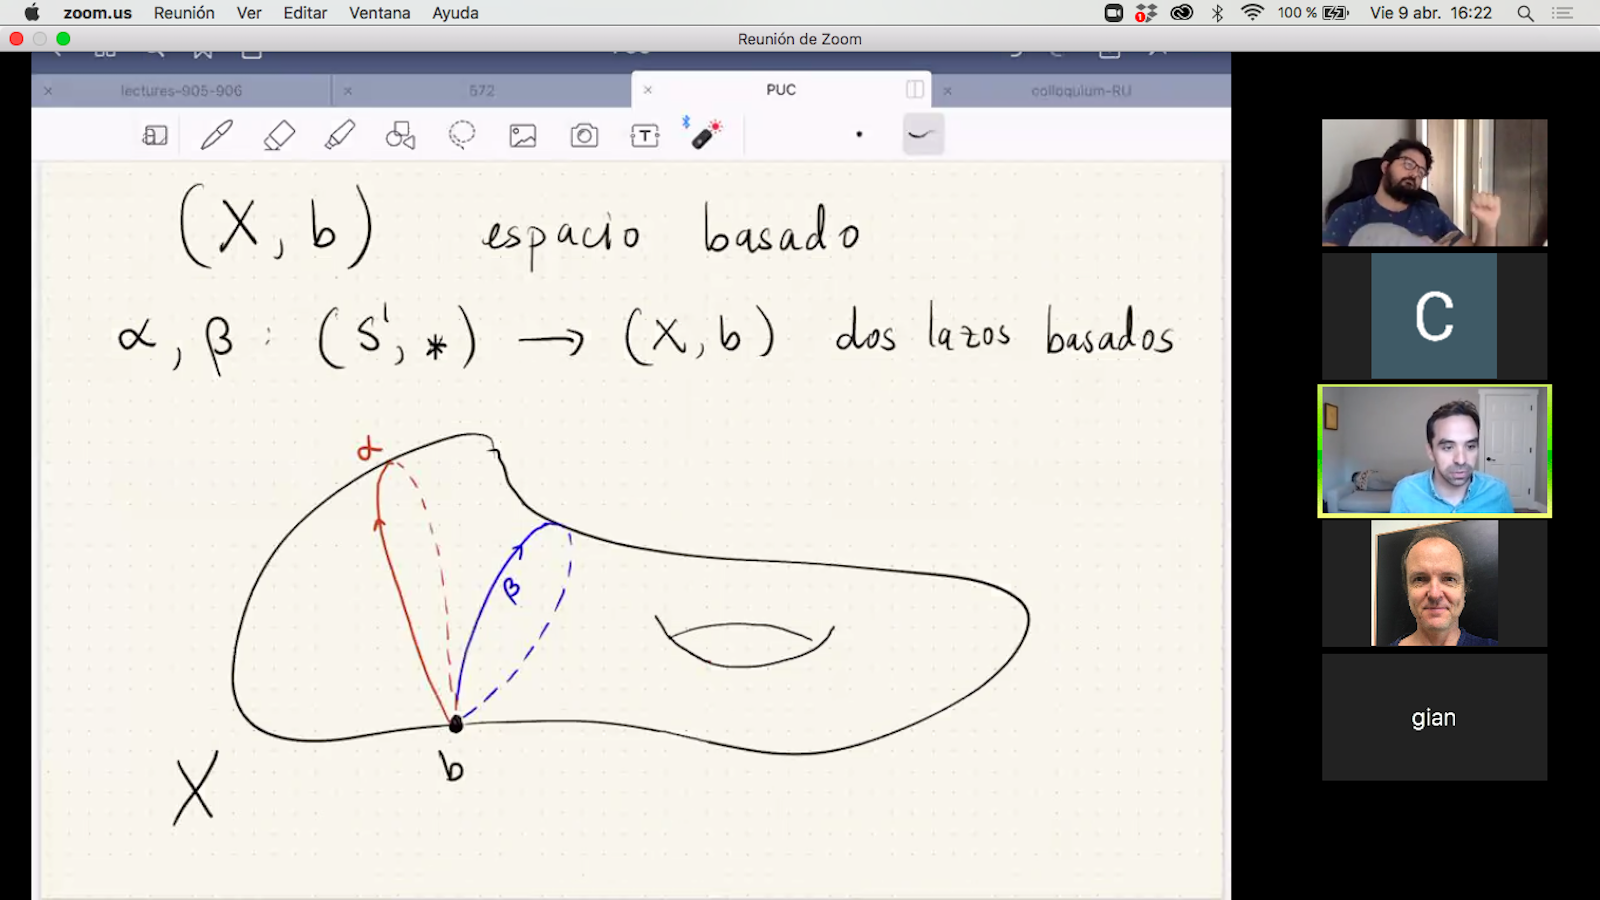 zoom.us Reunión Ver Editar Ventana Ayuda 1 100 % Vie 9 abr. 16:22
Reunión de Zoom
lectures-905-906 572 PUC colloquium-RU
T
(X, b) espacio basado
α, β : (S¹, *) → (X, b) dos lazos basados
α
β
b
X
C
gian